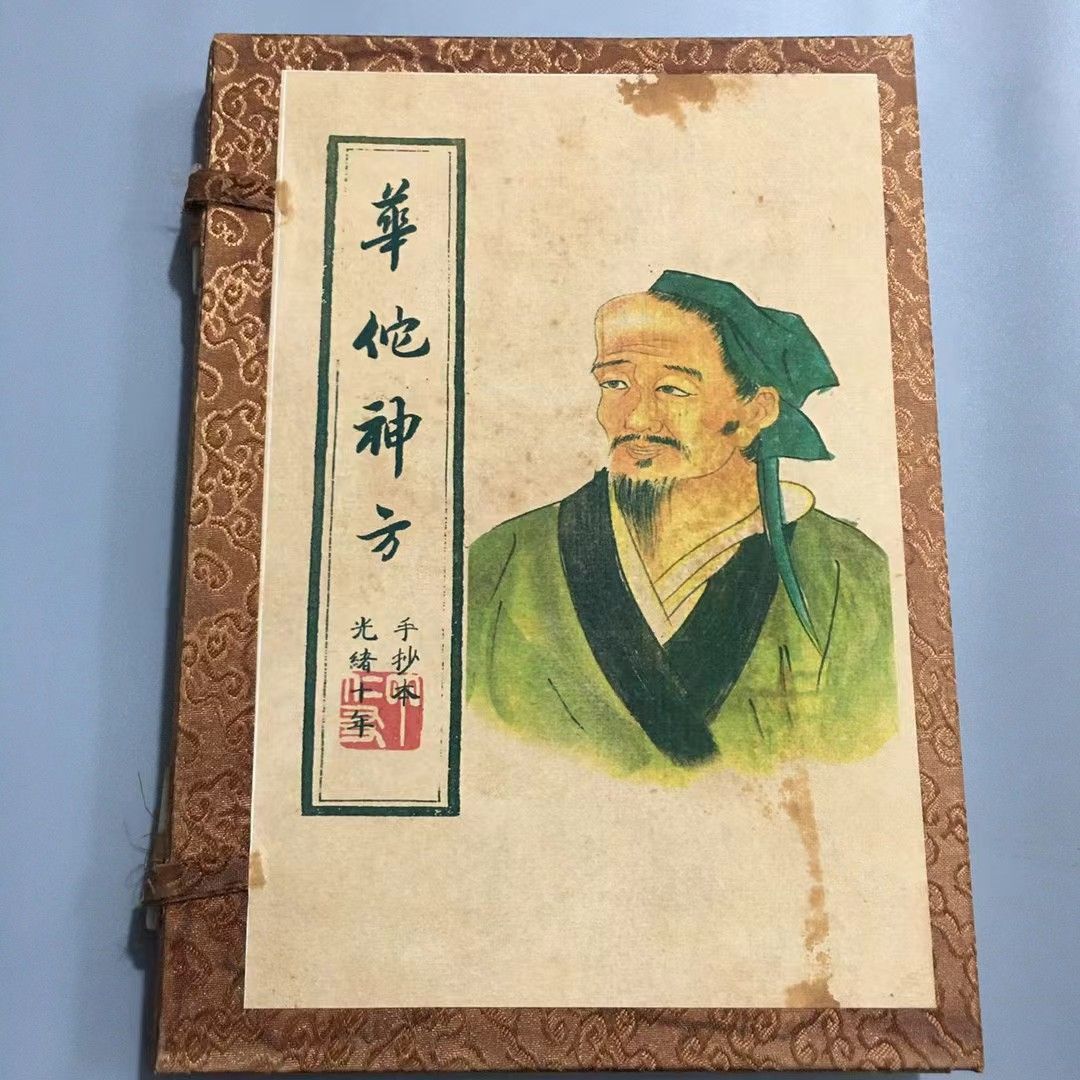 華佗神方
手抄本
光緒十年